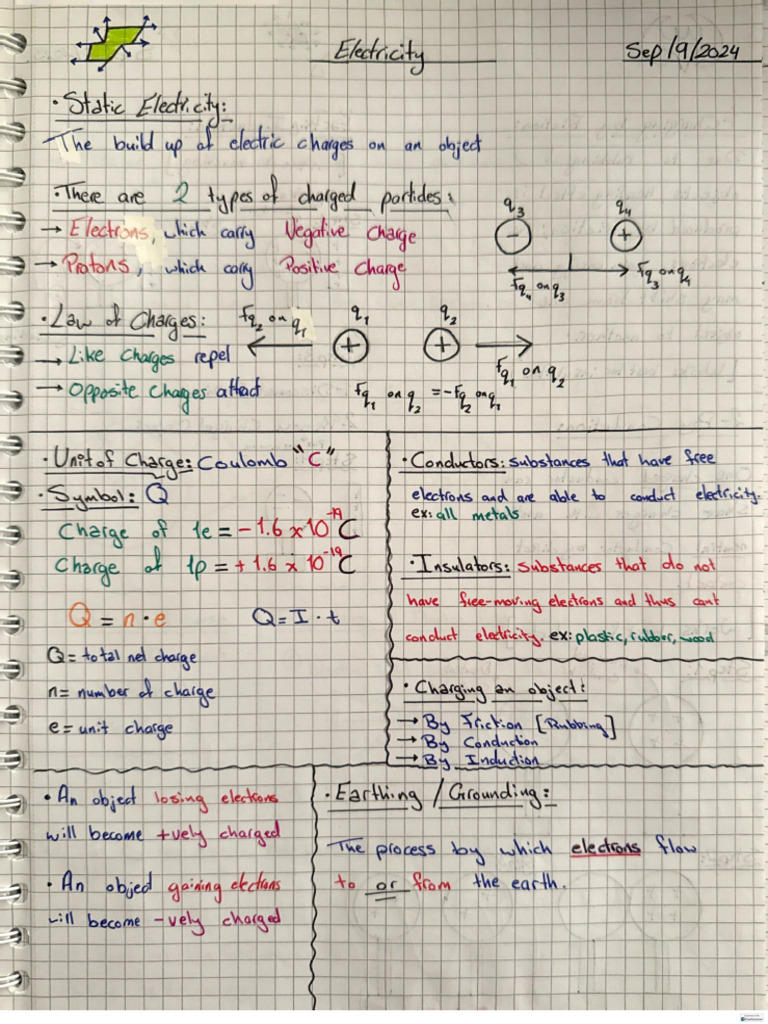 Electricity
Sep/9/2024
• Static Electricity:
The build up of electric charges on an object
• There are 2 types of charged particles:
→ Electrons, which carry Negative Charge
→ Protons, which carry Positive Charge
q3 q4
- +
Fq4 on q3 Fq3 on q4
• Law of Charges:
→ Like Charges repel
→ Opposite Charges attract
Fq2 on q1 q1 q2
+ +
Fq1 on q2
Fq1 on q2 = -Fq2 on q1
• Unit of Charge: Coulomb "C"
• Symbol: Q
Charge of 1e = -1.6 x 10^-19 C
Charge of 1p = +1.6 x 10^-19 C
Q = n · e Q = I · t
Q = total net charge
n = number of charge
e = unit charge
• Conductors: substances that have free
electrons and are able to conduct electricity.
ex: all metals
• Insulators: substances that do not
have free-moving electrons and thus cant
conduct electricity. ex: plastic, rubber, wood
• Charging an object:
→ By Friction [Rubbing]
→ By Conduction
→ By Induction
• An object losing electrons
will become +vely charged
• An object gaining electrons
will become -vely charged
• Earthing / Grounding:
The process by which electrons flow
to or from the earth.